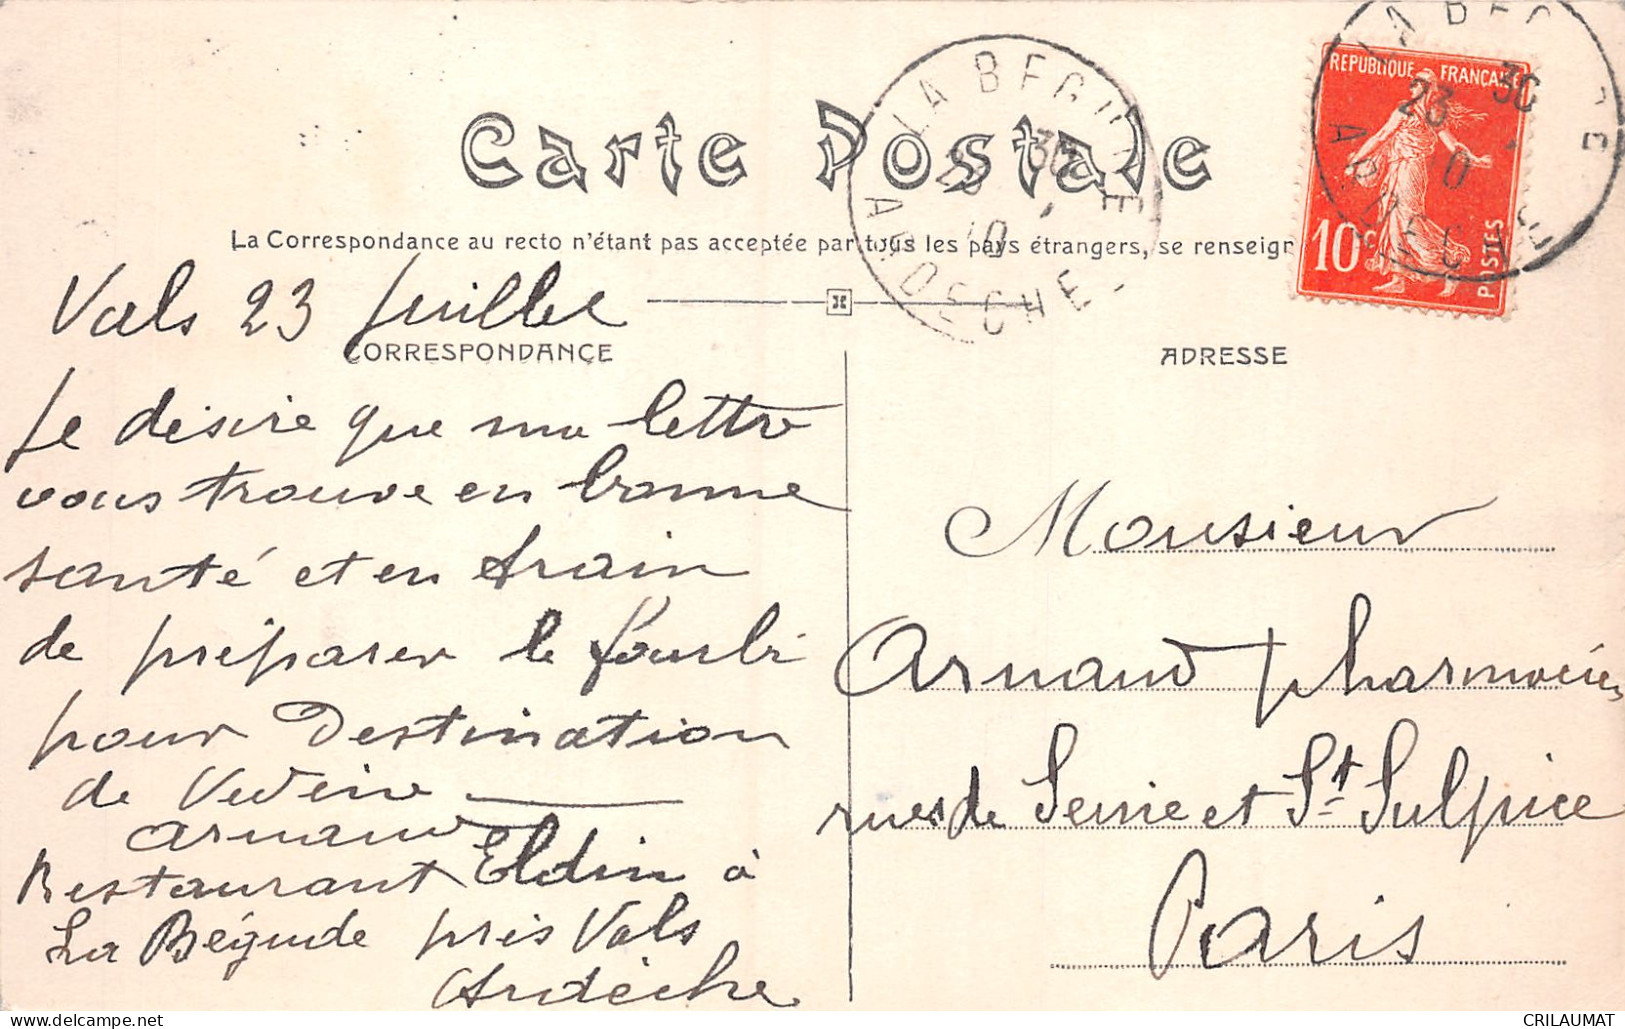 Carte Postale
La Correspondance au recto n'étant pas acceptée par tous les pays étrangers, se renseigr
CORRESPONDANCE
Vals 23 Juillet
Je désire que ma lettre
vous trouve en bonne
santé et en train
de préparer le fourbi
pour Destination
de
Arnaud
Restaurant Eldin à
La Bégude près Vals
Ardèche
ADRESSE
Monsieur
Arnaud pharmacien
rues de Seine et St Sulpice
Paris
REPUBLIQUE FRANÇAISE
10c
POSTES
LA BEGUDE
23 30
10
ARDECHE
LA BEGUDE
23 30
10
ARDECHE
CRILAUMAT